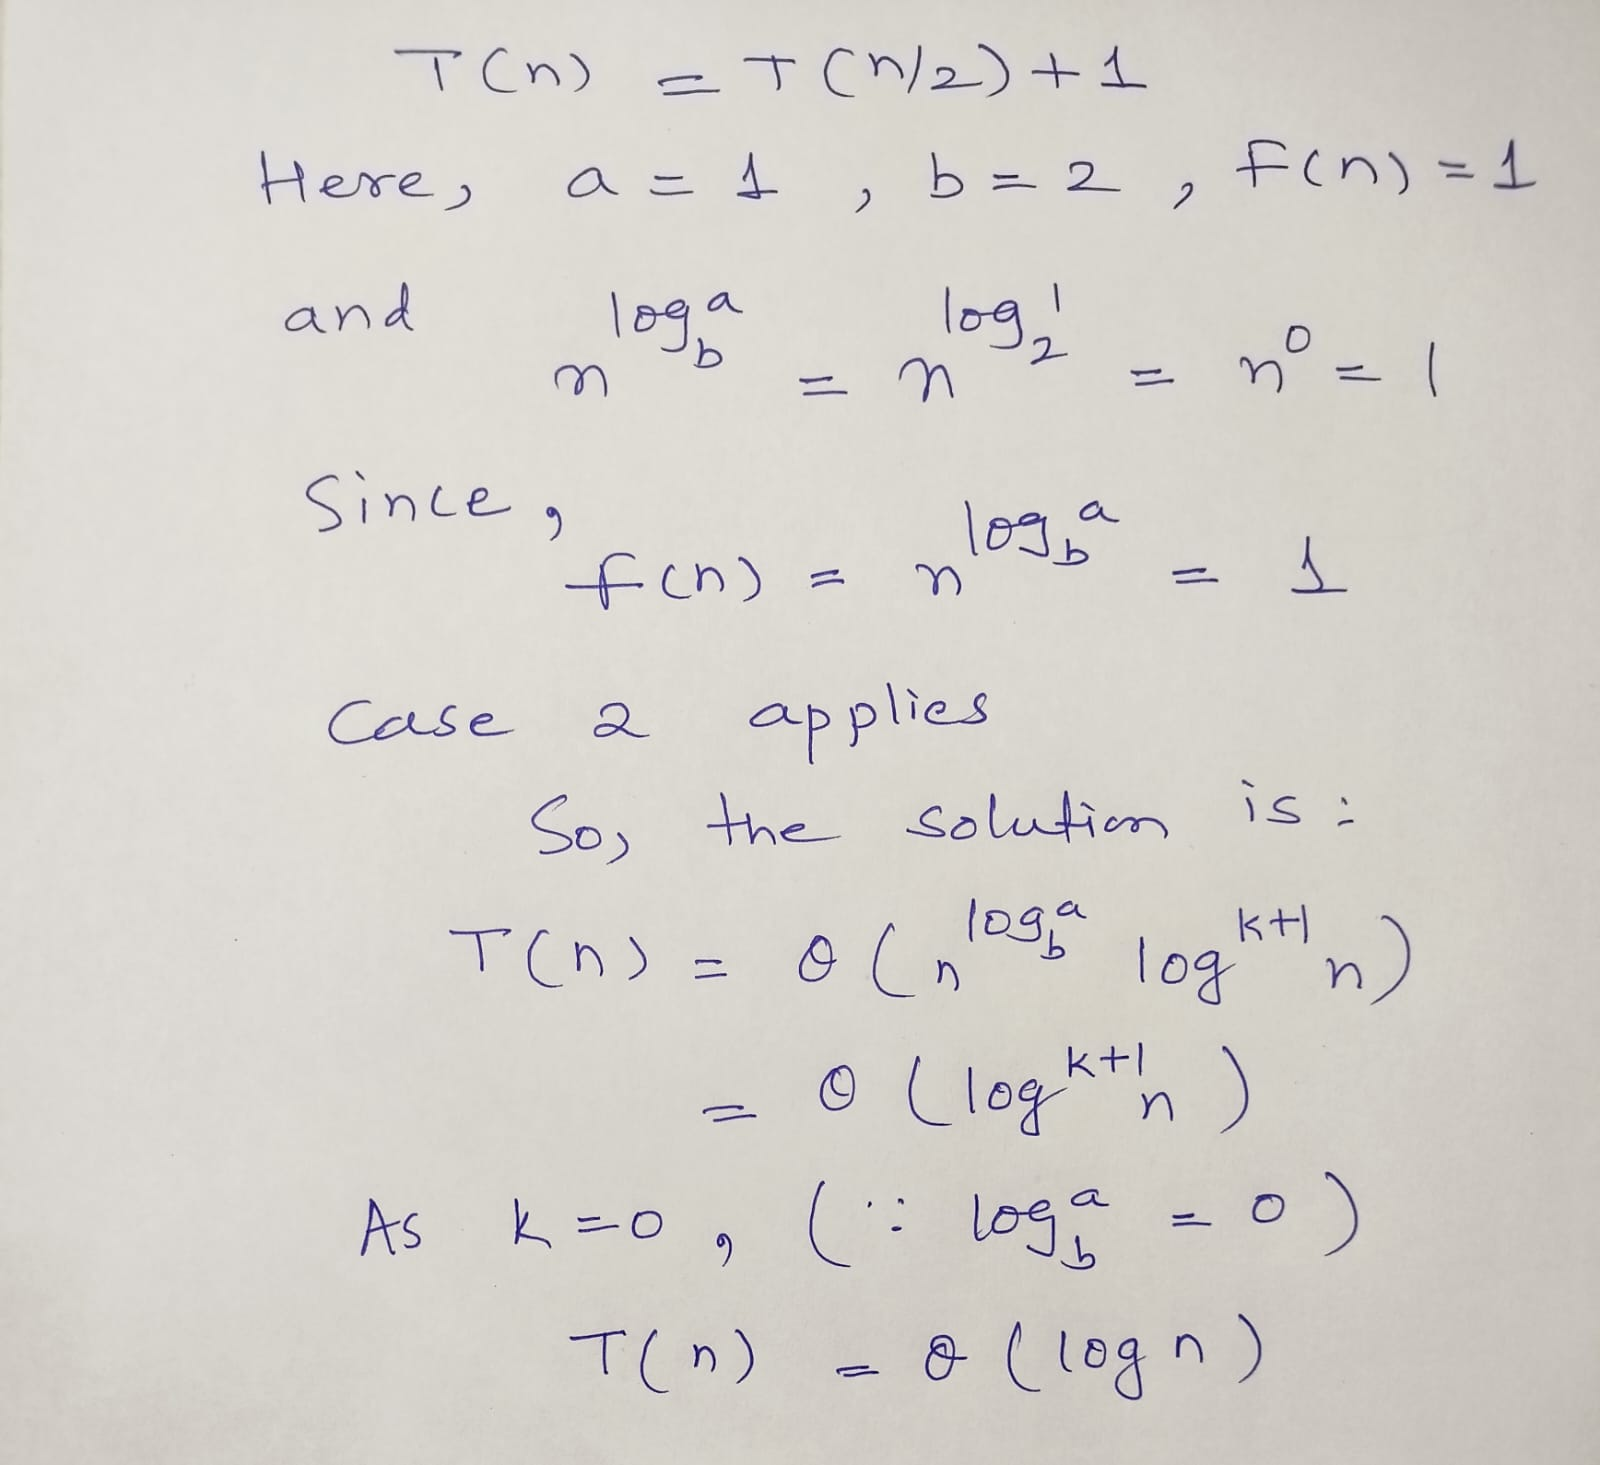 T(n) = T(n/2)+1
Here, a = 1 , b = 2 , f(n) = 1
and n^{log_b^a} = n^{log_2^1} = n^0 = 1
Since,
f(n) = n^{log_b^a} = 1
Case 2 applies
So, the solution is:
T(n) = θ(n^{log_b^a} log^{k+1} n)
= θ(log^{k+1} n)
As k=0, (∵ log_b^a = 0)
T(n) = θ(log n)